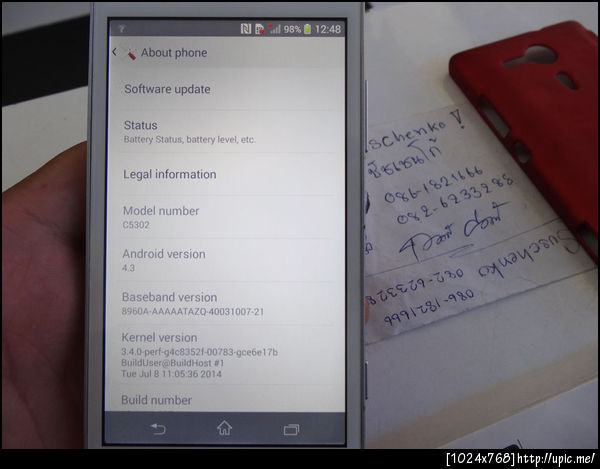 98% 12:48
About phone
Software update
Status
Battery Status, battery level, etc.
Legal information
Model number
C5302
Android version
4.3
Baseband version
8960A-AAAAATAZQ-40031007-21
Kernel version
3.4.0-perf-g4c8352f-00783-gce6e17b
BuildUser@BuildHost #1
Tue Jul 8 11:05:36 2014
Build number
schenko !
086-1821666
082-6233288
Guschenko
082-623328
086-1821666
[1024x768]http://upic.me/